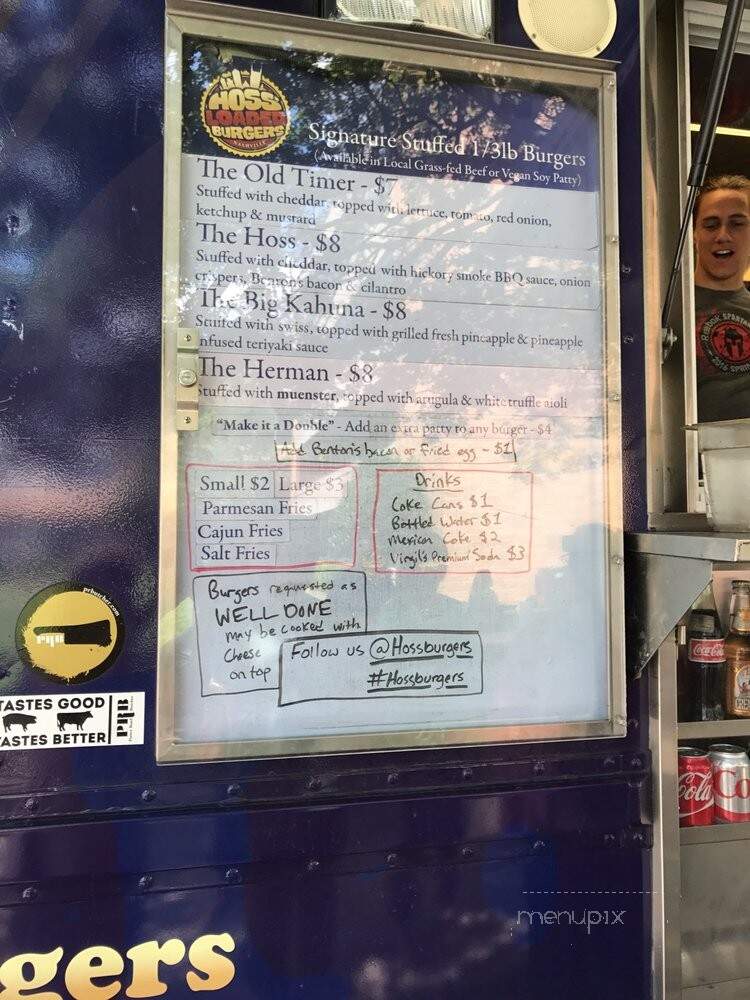 HOSS
LOADED
BURGERS
NASHVILLE
Signature Stuffed 1/3lb Burgers
(Available in Local Grass-fed Beef or Vegan Soy Patty)
The Old Timer - $7
Stuffed with cheddar, topped with lettuce, tomato, red onion,
ketchup & mustard
The Hoss - $8
Stuffed with cheddar, topped with hickory smoke BBQ sauce, onion
crispers, Benton's bacon & cilantro
The Big Kahuna - $8
Stuffed with swiss, topped with grilled fresh pineapple & pineapple
infused teriyaki sauce
The Herman - $8
Stuffed with muenster, topped with arugula & white truffle aioli
"Make it a Double" - Add an extra patty to any burger - $4
Add Benton's bacon or fried egg - $1
Small $2 Large $3
Parmesan Fries
Cajun Fries
Salt Fries
Drinks
Coke Cans $1
Bottled Water $1
Mexican Coke $2
Virgil's Premium Soda $3
Burgers requested as
WELL DONE
may be cooked with
Cheese
on top
Follow us @Hossburgers
#Hossburgers
prbutcher.com
TASTES GOOD
TASTES BETTER
PRB
Reebok SPARTAN
2016
Coca-Cola
Cola
Co
gers
menupix